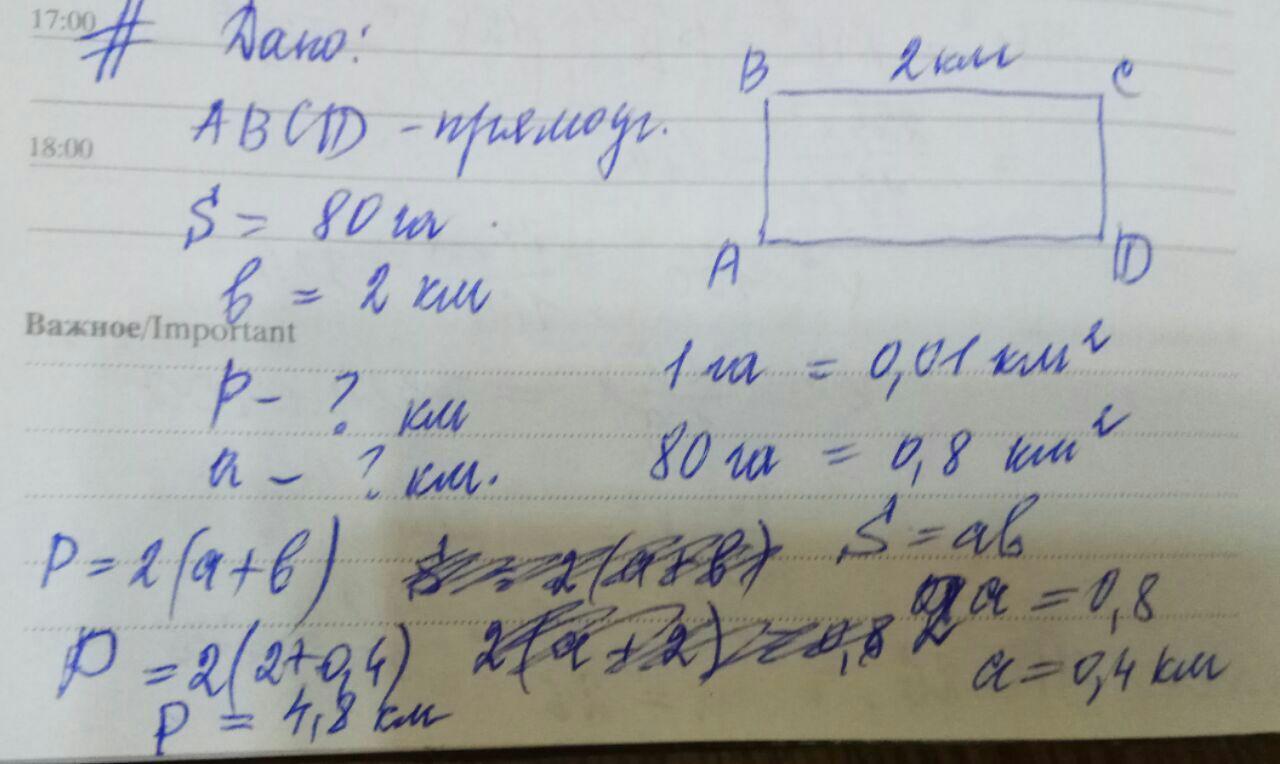 17:00
# Дано:
B 2 км C
ABCD - прямоуг.
18:00
S = 80 га
A D
в = 2 км
Важное/Important
P - ? км
1 га = 0,01 км²
a - ? км.
80 га = 0,8 км²
P = 2(a+в) S = 2(a+в) S = aв
2a = 0,8
P = 2(2+0,4) 2(a+2) = 0,8
a = 0,4 км
P = 4,8 км